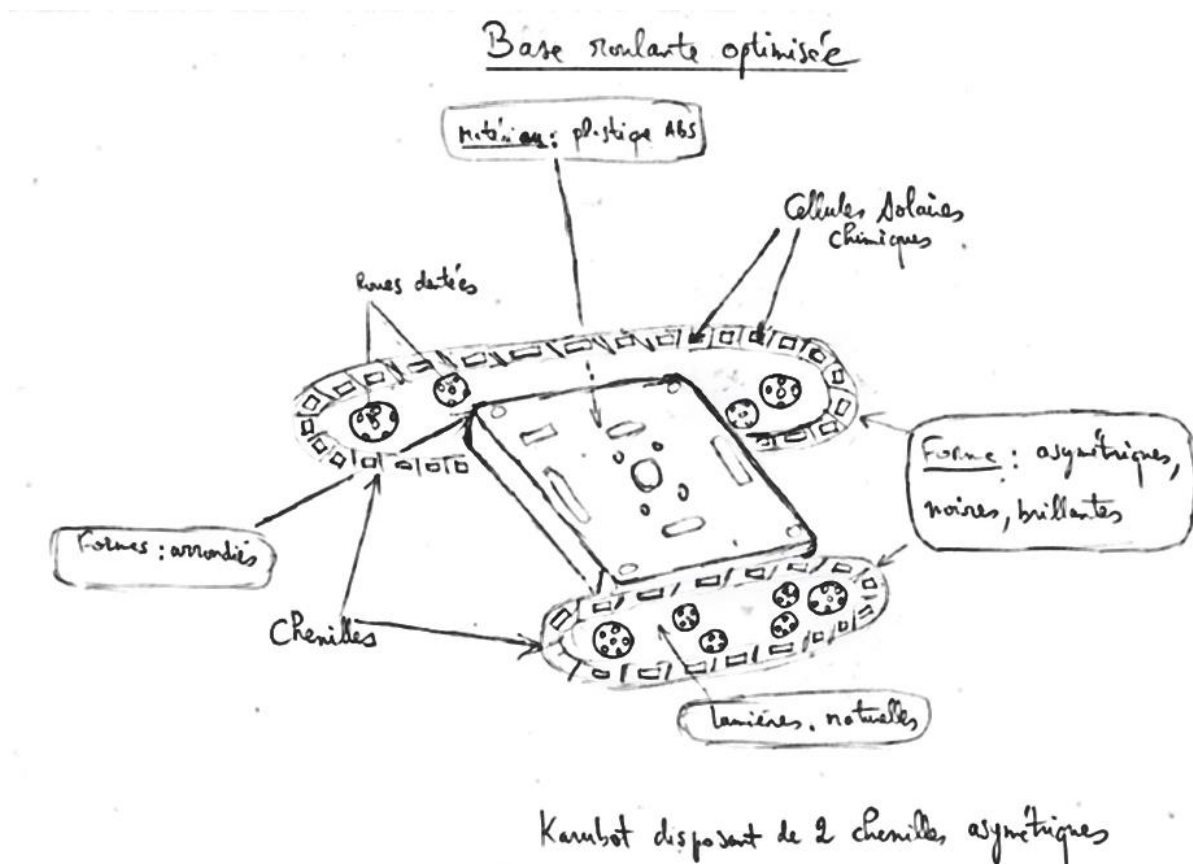 Base roulante optimisée
Matériau : plastique ABS
Cellules solaires
chimiques
Roues dentées
Forme : asymétriques,
noires, brillantes
Formes : arrondies
Chenilles
Lumières. naturelles
Karubot disposant de 2 chenilles asymétriques